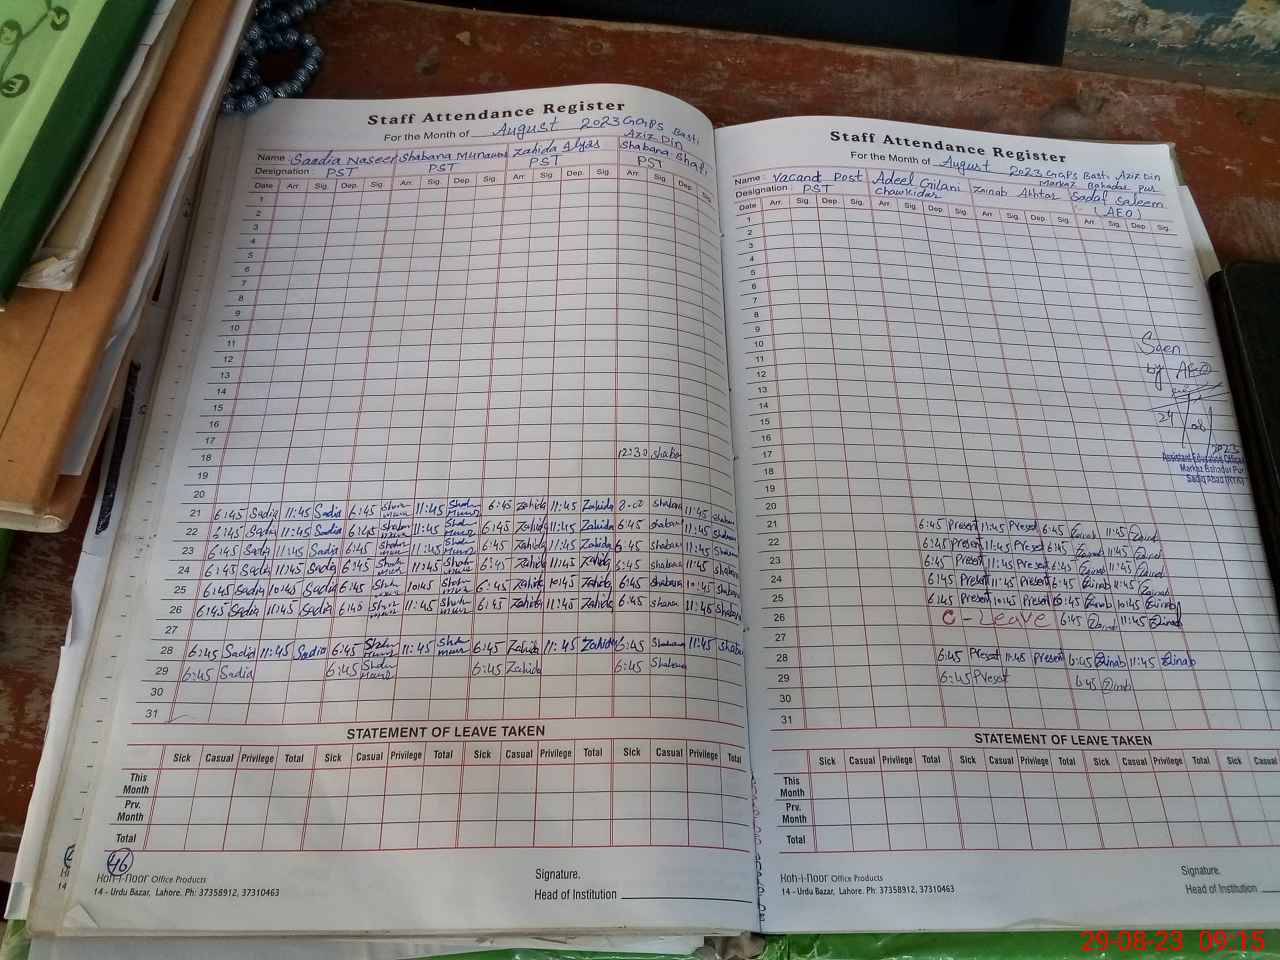 Staff Attendance Register
For the Month of August 2023 GGPS Basti
Aziz Din
Name : Saadia Naseer Shabana Munawar Zahida Alyas Shabana Shafi
Designation : PST PST PST PST
Date Arr. Sig. Dep. Sig. Arr. Sig. Dep. Sig. Arr. Sig. Dep. Sig. Arr. Sig. Dep. Sig.
1
2
3
4
5
6
7
8
9
10
11
12
13
14
15
16
17
18 12:30 Shaba
19
20
21 6:45 Sadia 11:45 Sadia 6:45 11:45 6:45 Zahida 11:45 Zahida 8:00 Shabana 11:45 Shabana
22 6:45 Sadia 11:45 Sadia 6:45 11:45 6:45 Zahida 11:45 Zahida 6:45 Shabana 11:45 Shabana
23 6:45 Sadia 11:45 Sadia 6:45 11:45 6:45 Zahida 11:45 Zahida 6:45 Shabana 11:45 Shabana
24 6:45 Sadia 11:45 Sadia 6:45 11:45 6:45 Zahida 11:45 Zahida 6:45 Shabana 11:45 Shabana
25 6:45 Sadia 10:45 Sadia 6:45 10:45 6:45 Zahida 10:45 Zahida 6:45 Shabana 10:45 Shabana
26 6:45 Sadia 11:45 Sadia 6:45 11:45 6:45 Zahida 11:45 Zahida 6:45 Shabana 11:45 Shabana
27
28 6:45 Sadia 11:45 Sadia 6:45 11:45 6:45 Zahida 11:45 Zahida 6:45 Shabana 11:45 Shaba
29 6:45 Sadia 6:45 6:45 Zahida 6:45 Shabana
30
31
STATEMENT OF LEAVE TAKEN
Sick Casual Privilege Total Sick Casual Privilege Total Sick Casual Privilege Total Sick Casual Privilege Total
This Month
Prv. Month
Total
46
Koh-i-noor Office Products
14 - Urdu Bazar, Lahore. Ph: 37358912, 37310463
Signature.
Head of Institution
Staff Attendance Register
For the Month of August 2023 GGPS Basti Aziz Din
Markaz Bahadur Pur
Name : Vacant Post Adeel Gilani Zainab Akhtar Sadaf Saleem
Designation : PST Chawkidar (AEO)
Date Arr. Sig. Dep. Sig. Arr. Sig. Dep. Sig. Arr. Sig. Dep. Sig. Arr. Sig. Dep. Sig.
1
2
3
4
5
6
7
8
9
10
11
12
13
14
15
16
17
18
19
20
Seen
by AEO
24/08/2023
Assistant Education Officer
Markaz Bahadur Pur
Sadiq Abad (RYK)
21 6:45 Present 11:45 Present 6:45 Zainab 11:45 Zainab
22 6:45 Present 11:45 Present 6:45 Zainab 11:45 Zainab
23 6:45 Present 11:45 Present 6:45 Zainab 11:45 Zainab
24 6:45 Present 11:45 Present 6:45 Zainab 11:45 Zainab
25 6:45 Present 10:45 Present 6:45 Zainab 10:45 Zainab
26 C - Leave 6:45 Zainab 11:45 Zainab
27
28 6:45 Present 11:45 Present 6:45 Zainab 11:45 Zainab
29 6:45 Present 6:45 Zainab
30
31
STATEMENT OF LEAVE TAKEN
Sick Casual Privilege Total Sick Casual Privilege Total Sick Casual Privilege Total Sick Casual
This Month
Prv. Month
Total
Koh-i-noor Office Products
14 - Urdu Bazar, Lahore. Ph: 37358912, 37310463
Signature.
Head of Institution
29-08-23 09:15